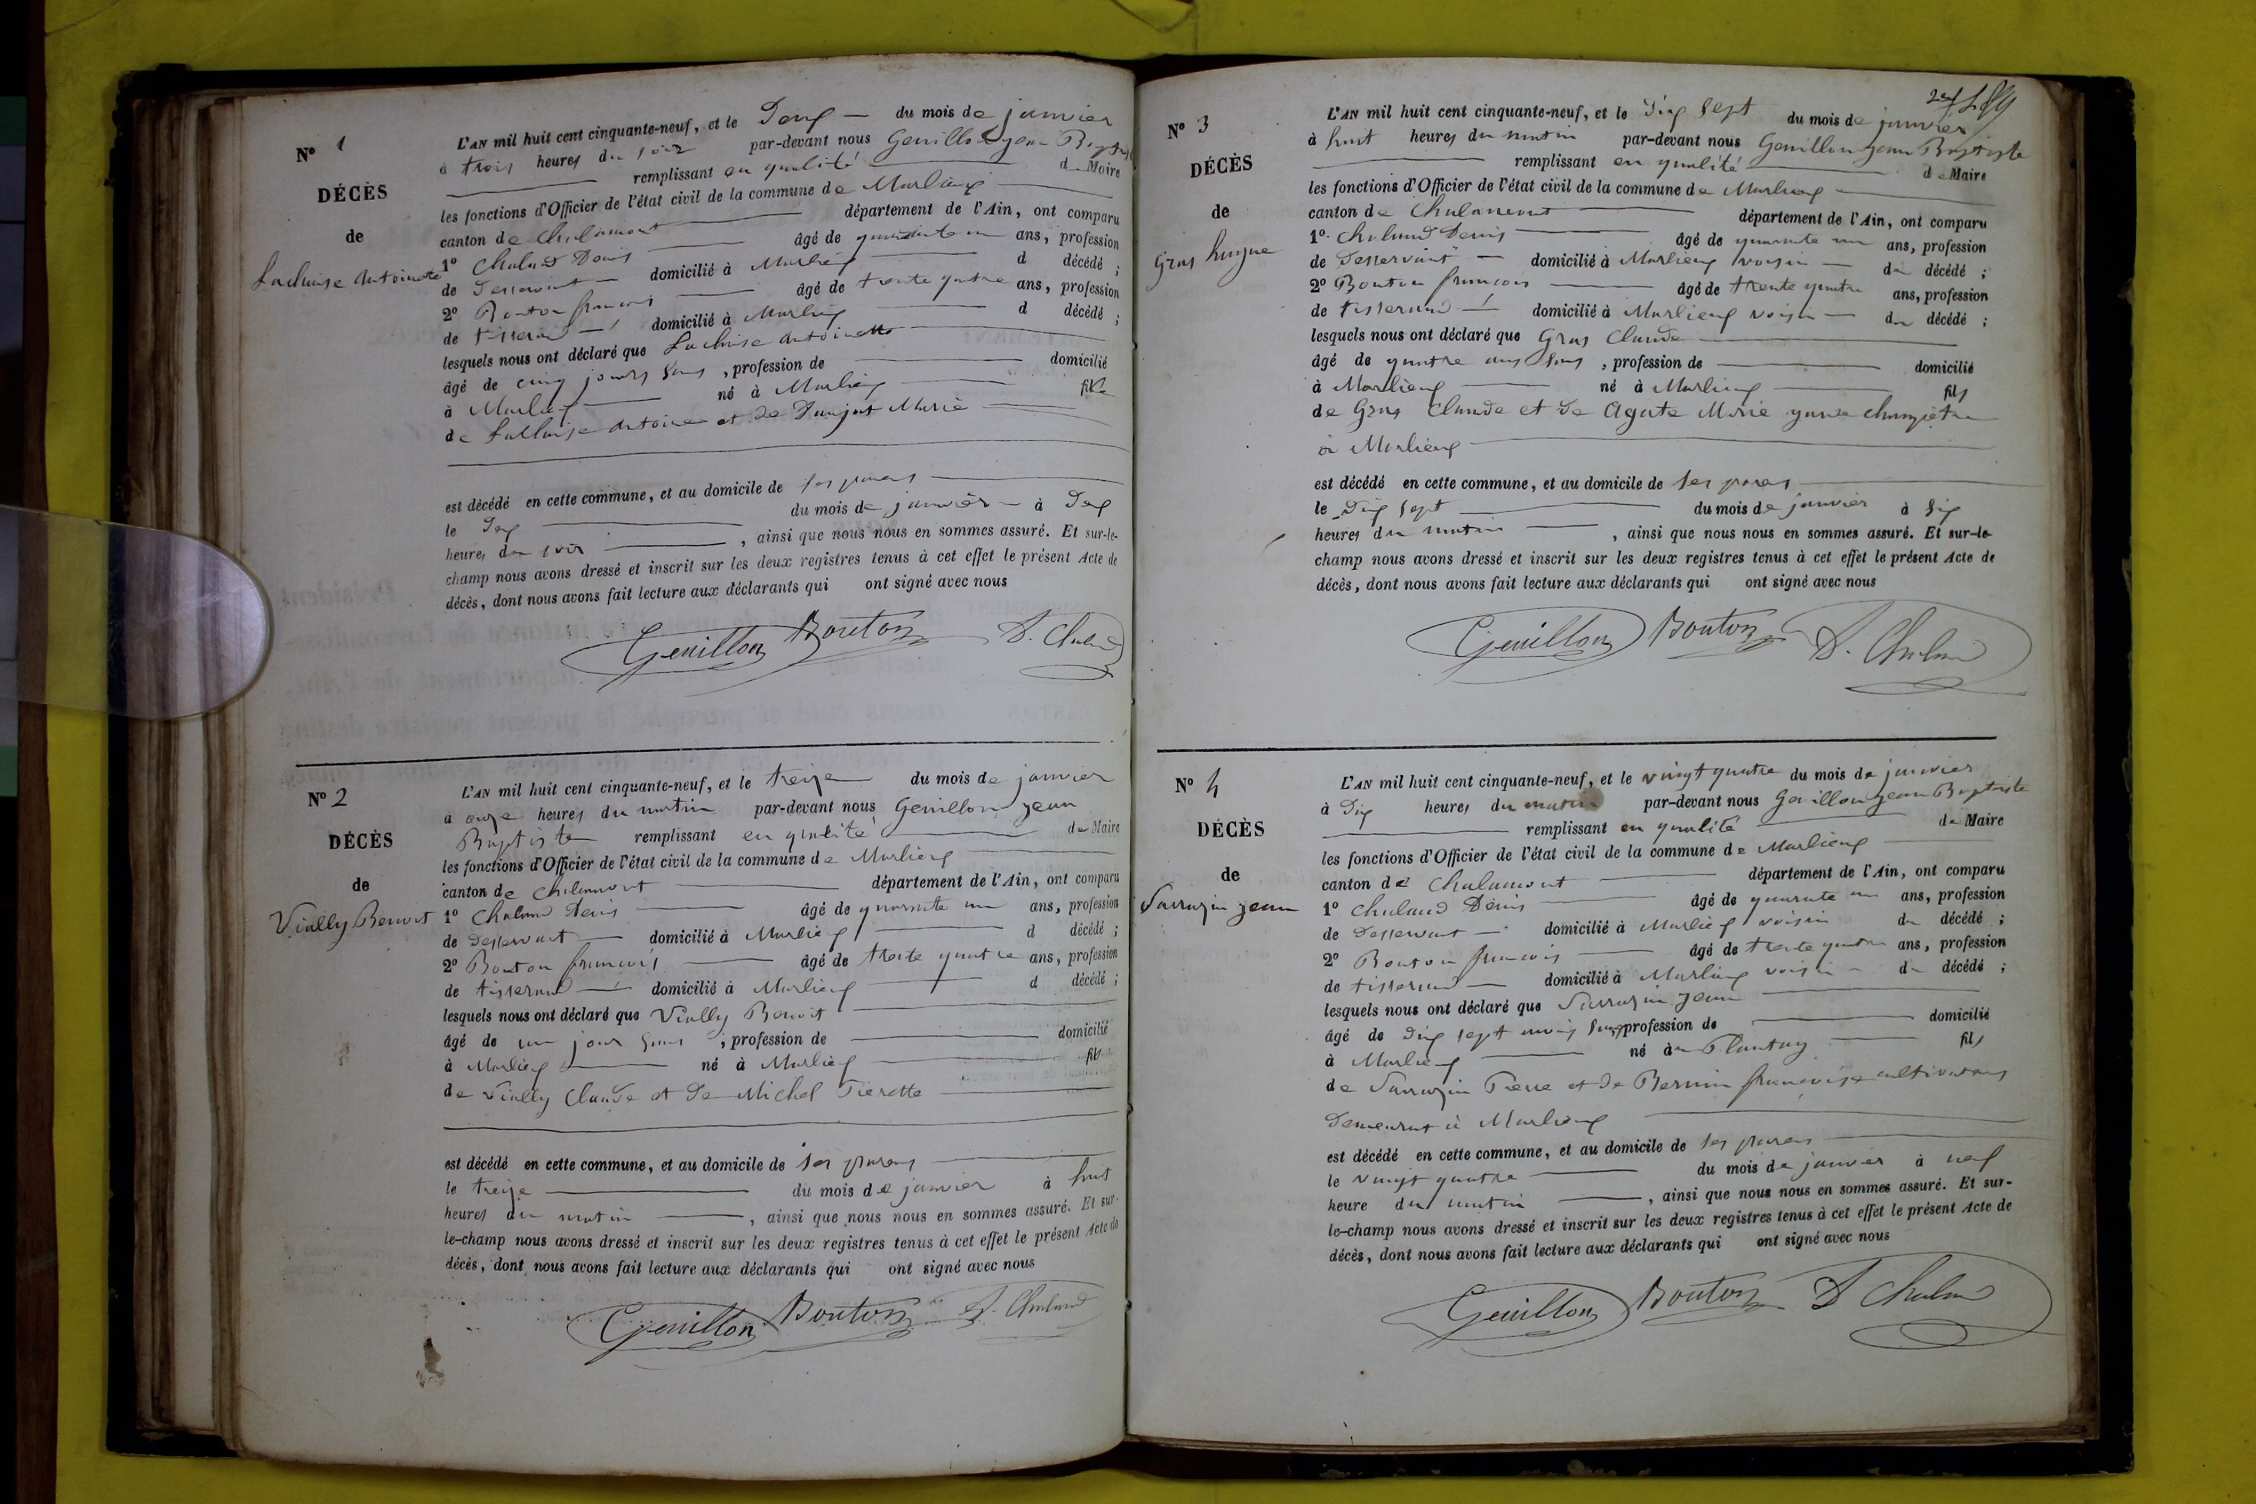 Nº 1
DÉCÈS
de
Lachaise Antoinette
L'AN mil huit cent cinquante-neuf, et le du mois de janvier
à trois heures du soir par-devant nous Genillon jean Baptiste
remplissant en qualité de Maire
les fonctions d'Officier de l'état civil de la commune de Marlieux
canton de Chalamont département de l'Ain, ont comparu
1º Chaland Denis âgé de quarante un ans, profession
de Desservant domicilié à Marlieux d décédé ;
2º Bouton françois âgé de trente quatre ans, profession
de tisserand domicilié à Marlieux d décédé ;
lesquels nous ont déclaré que Lachaise Antoinette
âgé de cinq jours sans , profession de domicilié
à Marlieux né à Marlieux fille
de Lachaise Antoine et de Marie
est décédé en cette commune, et au domicile de ses parens
le du mois de janvier à
heures du soir , ainsi que nous nous en sommes assuré. Et sur-le-
champ nous avons dressé et inscrit sur les deux registres tenus à cet effet le présent Acte de
décès, dont nous avons fait lecture aux déclarants qui ont signé avec nous
Genillon Bouton D. Chaland
Nº 2
DÉCÈS
de
Vially Benoit
L'AN mil huit cent cinquante-neuf, et le treize du mois de janvier
à onze heures du matin par-devant nous Genillon jean
Baptiste remplissant en qualité de Maire
les fonctions d'Officier de l'état civil de la commune de Marlieux
canton de Chalamont département de l'Ain, ont comparu
1º Chaland Denis âgé de quarante un ans, profession
de Desservant domicilié à Marlieux d décédé ;
2º Bouton françois âgé de trente quatre ans, profession
de tisserand domicilié à Marlieux d décédé ;
lesquels nous ont déclaré que Vially Benoit
âgé de un jour sans , profession de domicilié
à Marlieux né à Marlieux fils
de Vially Claude et de Michel Pierette
est décédé en cette commune, et au domicile de ses parens
le treize du mois de janvier à huit
heures du matin , ainsi que nous nous en sommes assuré. Et sur-
le-champ nous avons dressé et inscrit sur les deux registres tenus à cet effet le présent Acte de
décès, dont nous avons fait lecture aux déclarants qui ont signé avec nous
Genillon Bouton D. Chaland
Nº 3
DÉCÈS
de
Gras
L'AN mil huit cent cinquante-neuf, et le dix sept du mois de janvier
à huit heures du matin par-devant nous Genillon jean Baptiste
remplissant en qualité de Maire
les fonctions d'Officier de l'état civil de la commune de Marlieux
canton de Chalamont département de l'Ain, ont comparu
1º Chaland Denis âgé de quarante un ans, profession
de Desservant domicilié à Marlieux voisin du décédé ;
2º Bouton françois âgé de trente quatre ans, profession
de tisserand domicilié à Marlieux voisin du décédé ;
lesquels nous ont déclaré que Gras Claude
âgé de quatre ans sans , profession de domicilié
à Marlieux né à Marlieux fils
de Gras Claude et de Agate Marie garde champêtre
à Marlieux
est décédé en cette commune, et au domicile de ses parens
le dix sept du mois de janvier à six
heures du matin , ainsi que nous nous en sommes assuré. Et sur-le-
champ nous avons dressé et inscrit sur les deux registres tenus à cet effet le présent Acte de
décès, dont nous avons fait lecture aux déclarants qui ont signé avec nous
Genillon Bouton D. Chaland
Nº 4
DÉCÈS
de
Sarrazin jean
L'AN mil huit cent cinquante-neuf, et le vingt quatre du mois de janvier
à dix heures du matin par-devant nous Genillon jean Baptiste
remplissant en qualité de Maire
les fonctions d'Officier de l'état civil de la commune de Marlieux
canton de Chalamont département de l'Ain, ont comparu
1º Chaland Denis âgé de quarante un ans, profession
de Desservant domicilié à Marlieux voisin du décédé ;
2º Bouton françois âgé de trente quatre ans, profession
de tisserand domicilié à Marlieux voisin du décédé ;
lesquels nous ont déclaré que Sarrazin jean
âgé de dix sept mois sans profession de domicilié
à Marlieux né à Plantay fils
de Sarrazin Pierre et de françoise cultivateurs
demeurant à Marlieux
est décédé en cette commune, et au domicile de ses parens
le vingt quatre du mois de janvier à neuf
heure du matin , ainsi que nous nous en sommes assuré. Et sur-
le-champ nous avons dressé et inscrit sur les deux registres tenus à cet effet le présent Acte de
décès, dont nous avons fait lecture aux déclarants qui ont signé avec nous
Genillon Bouton D Chaland